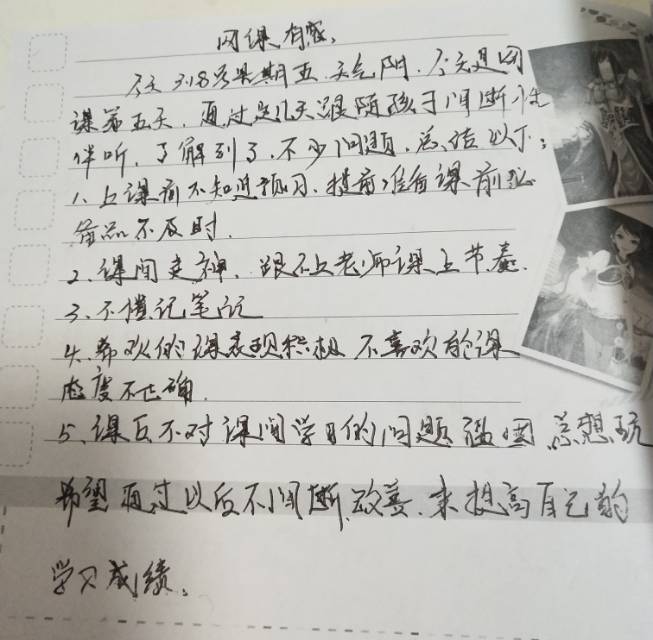 网课有感、
今天3.18号星期五.天气阴.今天是网
课第五天.通过这几天跟随孩子间断性
伴听.了解到了.不少问题.总结以下:
1、上课前不知道预习.提前准备课前必
备品不及时.
2、课间走神、跟不上老师课上节奏.
3、不懂记笔记
4、喜欢的课表现积极 不喜欢的课
态度不正确.
5、课后不对课间学习的问题 总想玩
希望通过以后不间断.改善.来提高自己的
学习成绩、